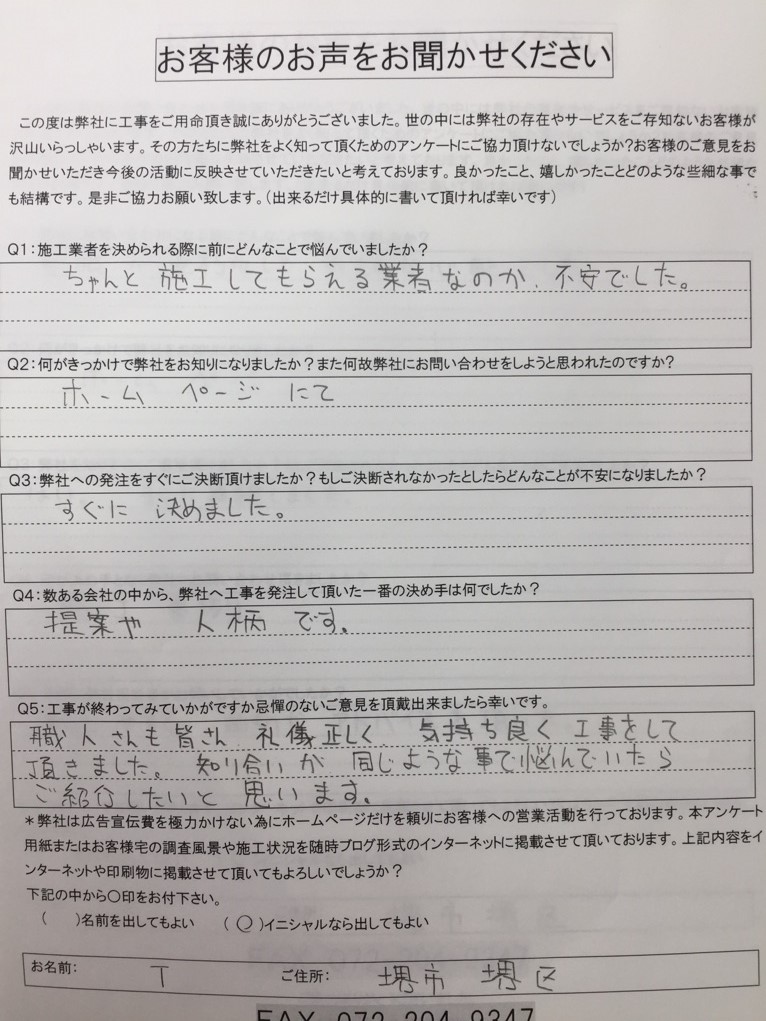 お客様のお声をお聞かせください
この度は弊社に工事をご用命頂き誠にありがとうございました。世の中には弊社の存在やサービスをご存知ないお客様が
沢山いらっしゃいます。その方たちに弊社をよく知って頂くためのアンケートにご協力頂けないでしょうか?お客様のご意見をお
聞かせいただき今後の活動に反映させていただきたいと考えております。良かったこと、嬉しかったことどのような些細な事で
も結構です。是非ご協力お願い致します。(出来るだけ具体的に書いて頂ければ幸いです)
Q1:施工業者を決められる際に前にどんなことで悩んでいましたか?
ちゃんと 施工してもらえる業者なのか、不安でした。
Q2:何がきっかけで弊社をお知りになりましたか?また何故弊社にお問い合わせをしようと思われたのですか?
ホームページ にて
Q3:弊社への発注をすぐにご決断頂けましたか?もしご決断されなかったとしたらどんなことが不安になりましたか?
すぐに 決めました。
Q4:数ある会社の中から、弊社へ工事を発注して頂いた一番の決め手は何でしたか?
提案や 人柄 です。
Q5:工事が終わってみていかがですか忌憚のないご意見を頂戴出来ましたら幸いです。
職人さんも皆さん 礼儀正しく 気持ち良く 工事をして
頂きました。 知り合いが 同じような事で悩んでいたら
ご紹介したいと 思います。
*弊社は広告宣伝費を極力かけない為にホームページだけを頼りにお客様への営業活動を行っております。本アンケート
用紙またはお客様宅の調査風景や施工状況を随時ブログ形式のインターネットに掲載させて頂いております。上記内容をイ
ンターネットや印刷物に掲載させて頂いてもよろしいでしょうか?
下記の中から○印をお付下さい。
( )名前を出してもよい (○)イニシャルなら出してもよい
お名前: T ご住所: 堺市 堺区
FAX 072-204-9347